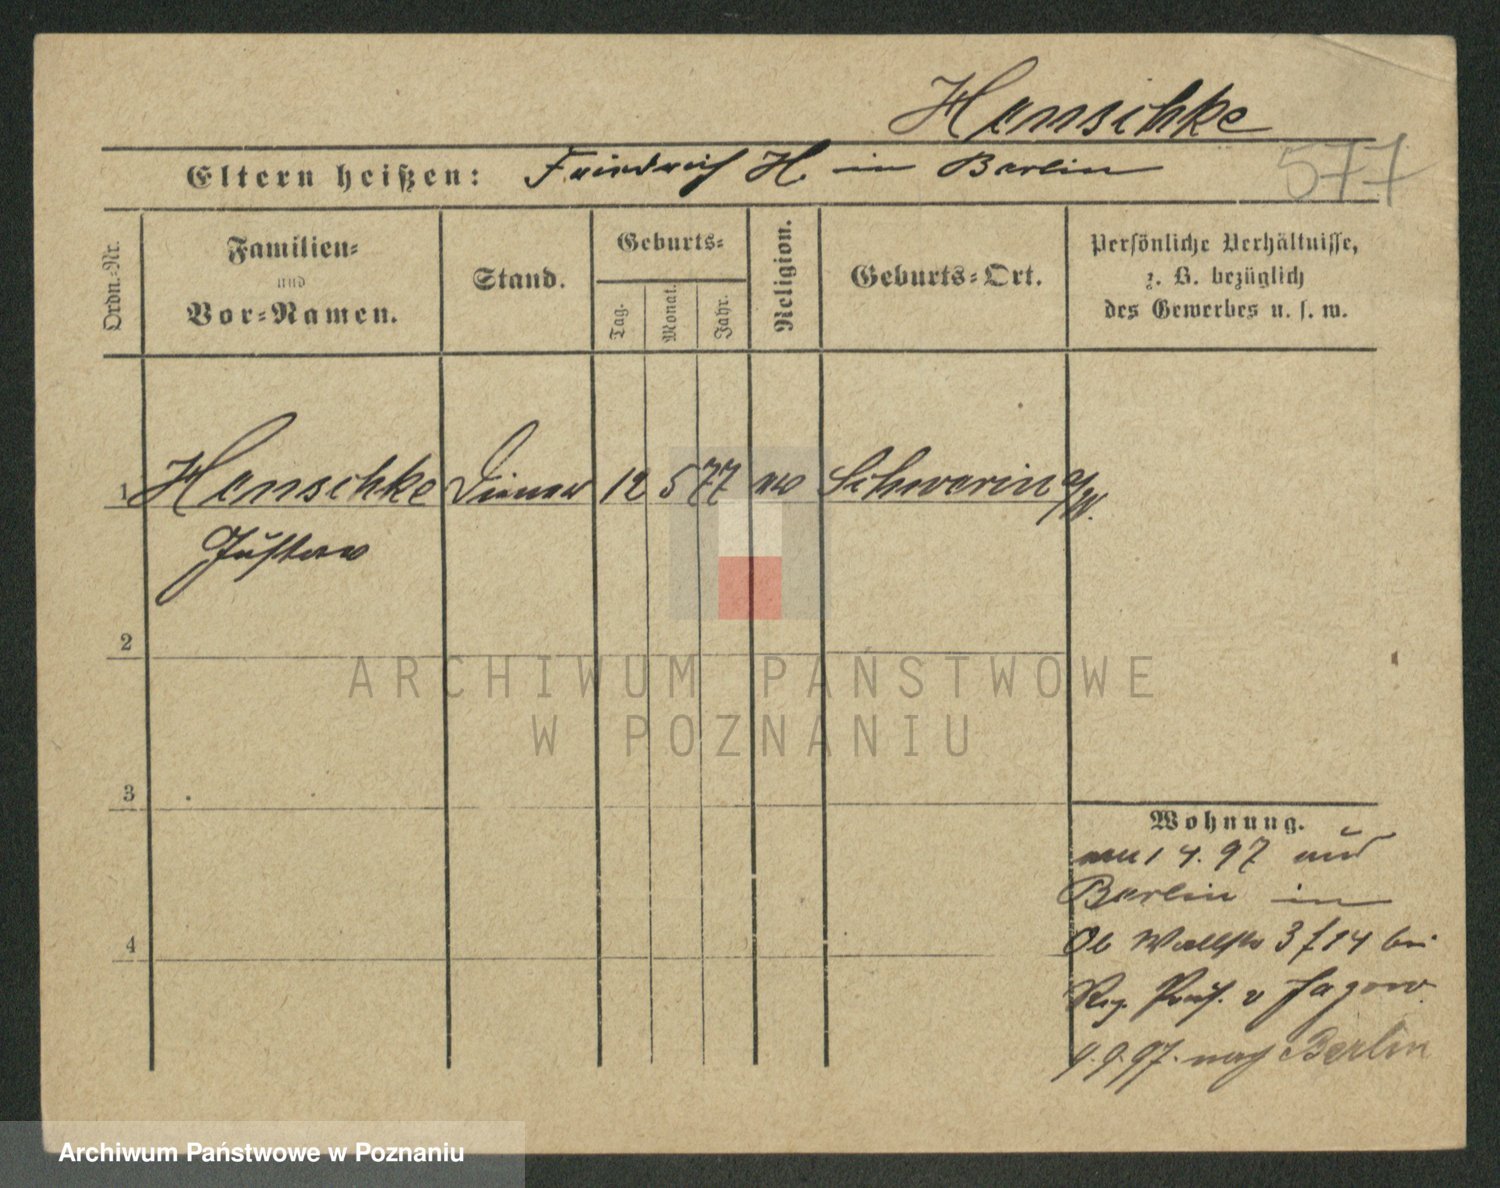 Henschke
577
Eltern heißen: Friedrich H. in Berlin
Ordn.-Nr.
Familien-
und
Vor-Namen.
Stand.
Geburts-
Tag.
Monat.
Jahr.
Religion.
Geburts-Ort.
Persönliche Verhältnisse,
z. B. bezüglich
des Gewerbes u. s. w.
1 Henschke Diener 12 5 77 ev Schwerin a/W.
Gustav
2
3
4
Wohnung.
1 4. 97 aus
Berlin in
Ob Wallstr 3 f 14 bei
Reg. Präs. v Jagow.
9. 97. nach Berlin
ARCHIWUM PAŃSTWOWE
W POZNANIU
Archiwum Państwowe w Poznaniu